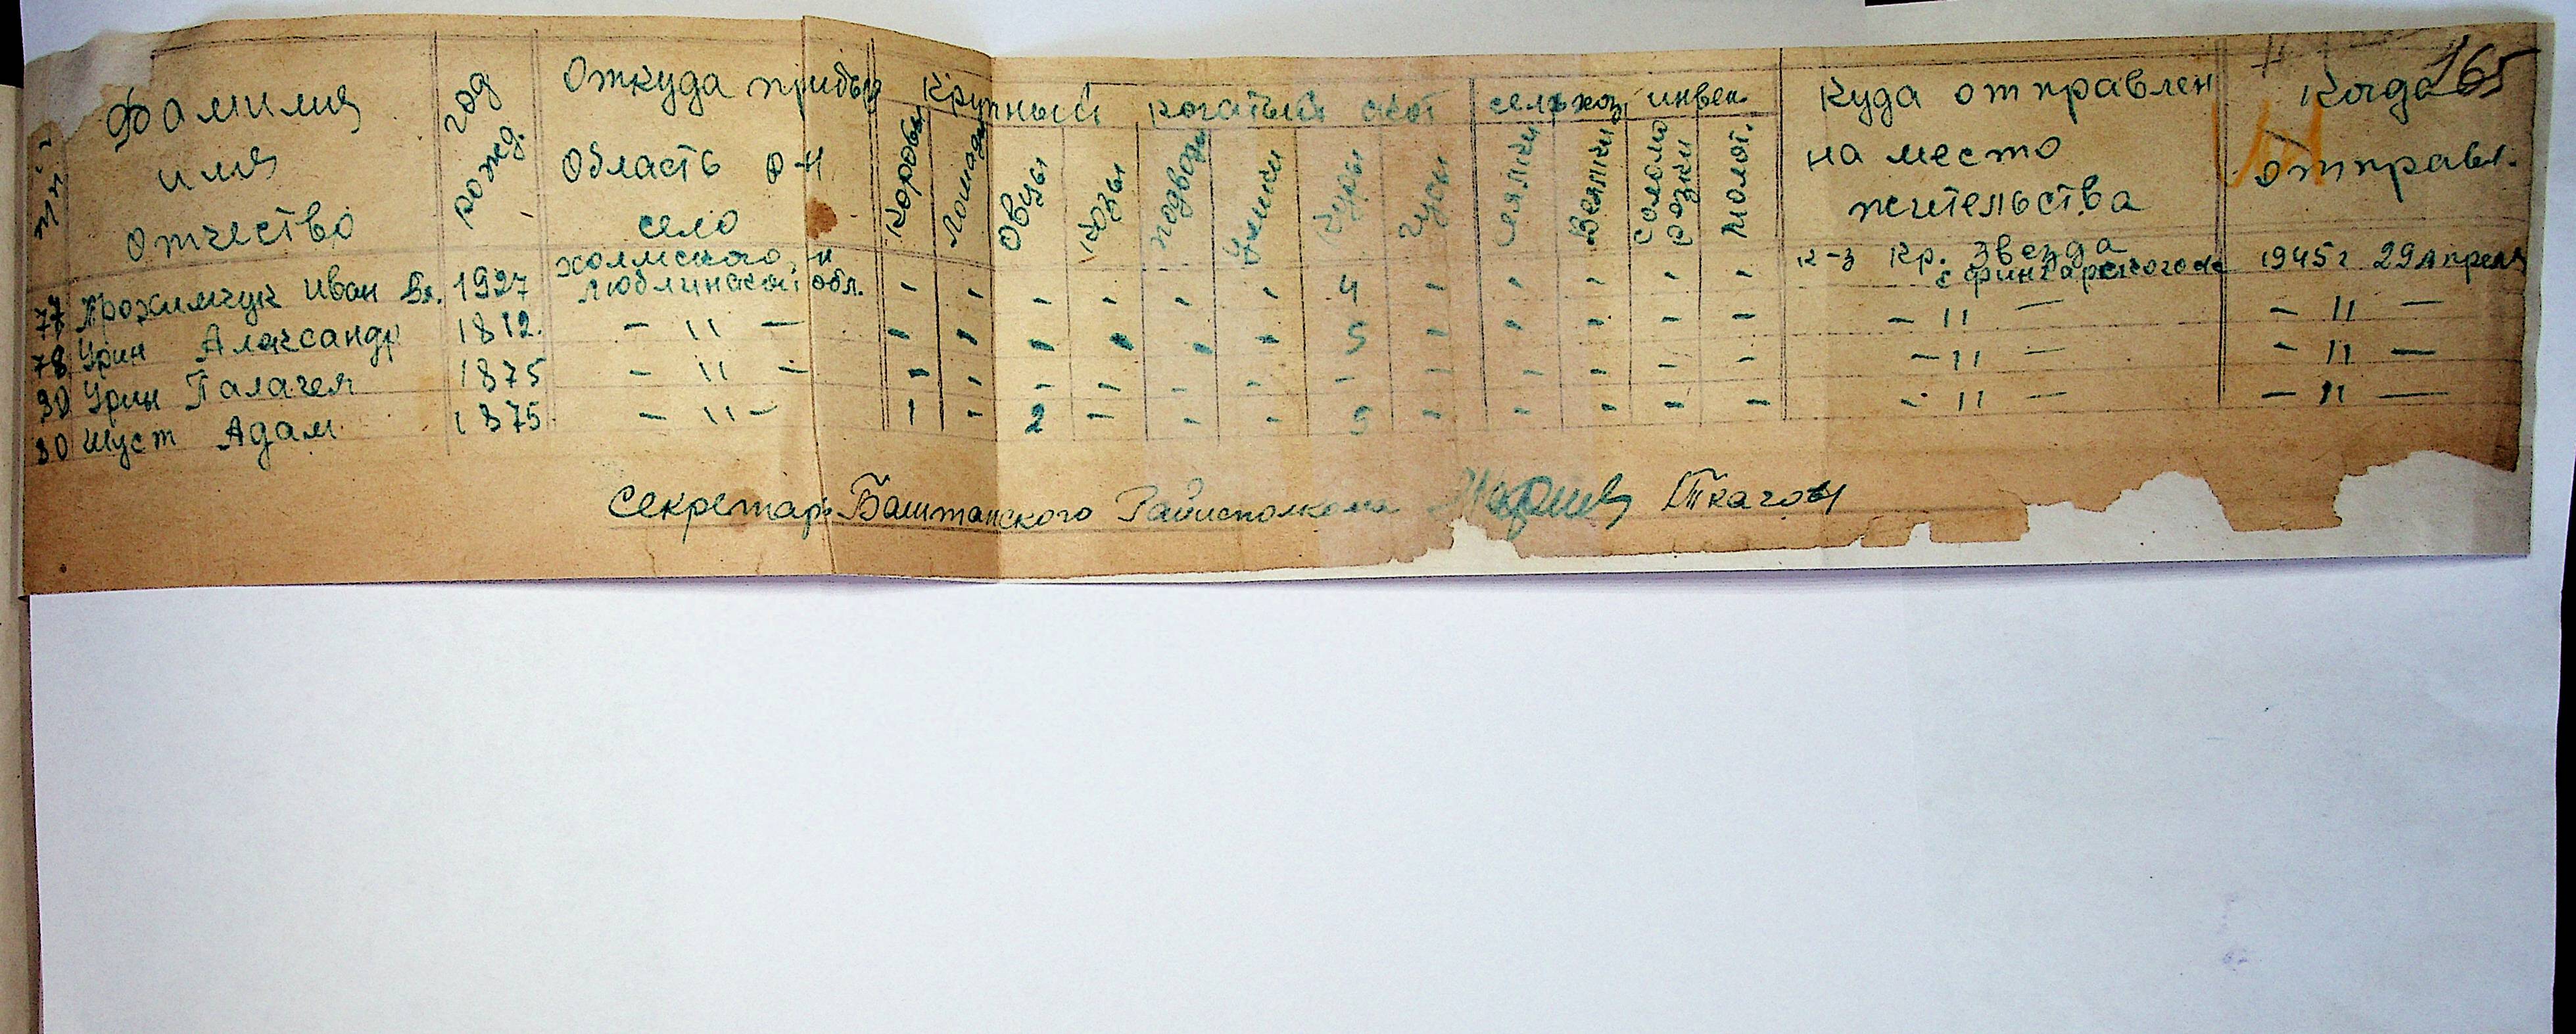 165
Фамилия имя отчество
год рожд.
Откуда прибыл
Область р-н
село
Крупный рогатый скот
сельхоз инвен.
Коровы
Лошади
Овцы
Козы
подводы
Куры
Гуси
сеялки
Веялки
Соломо резки
Молот.
Куда отправлен
на место
жительства
Когда
отправл.
77 Прохимчук Иван Вл. 1927 Холмского р-н Люблинской обл. - - - - - - 4 - - - - - к-з Кр. Звезда 1945 г 29 апреля
78 Урин Александр 1812. - " - - - - - - - 5 - - - - - - " - - " -
80 Урин Палагея 1875 - " - - - - - - - - - - - - - - " - - " -
80 Шуст Адам 1875 - " - 1 - 2 - - - 5 - - - - - - " - - " -
Секретарь Баштанского Райисполкома Ткагов